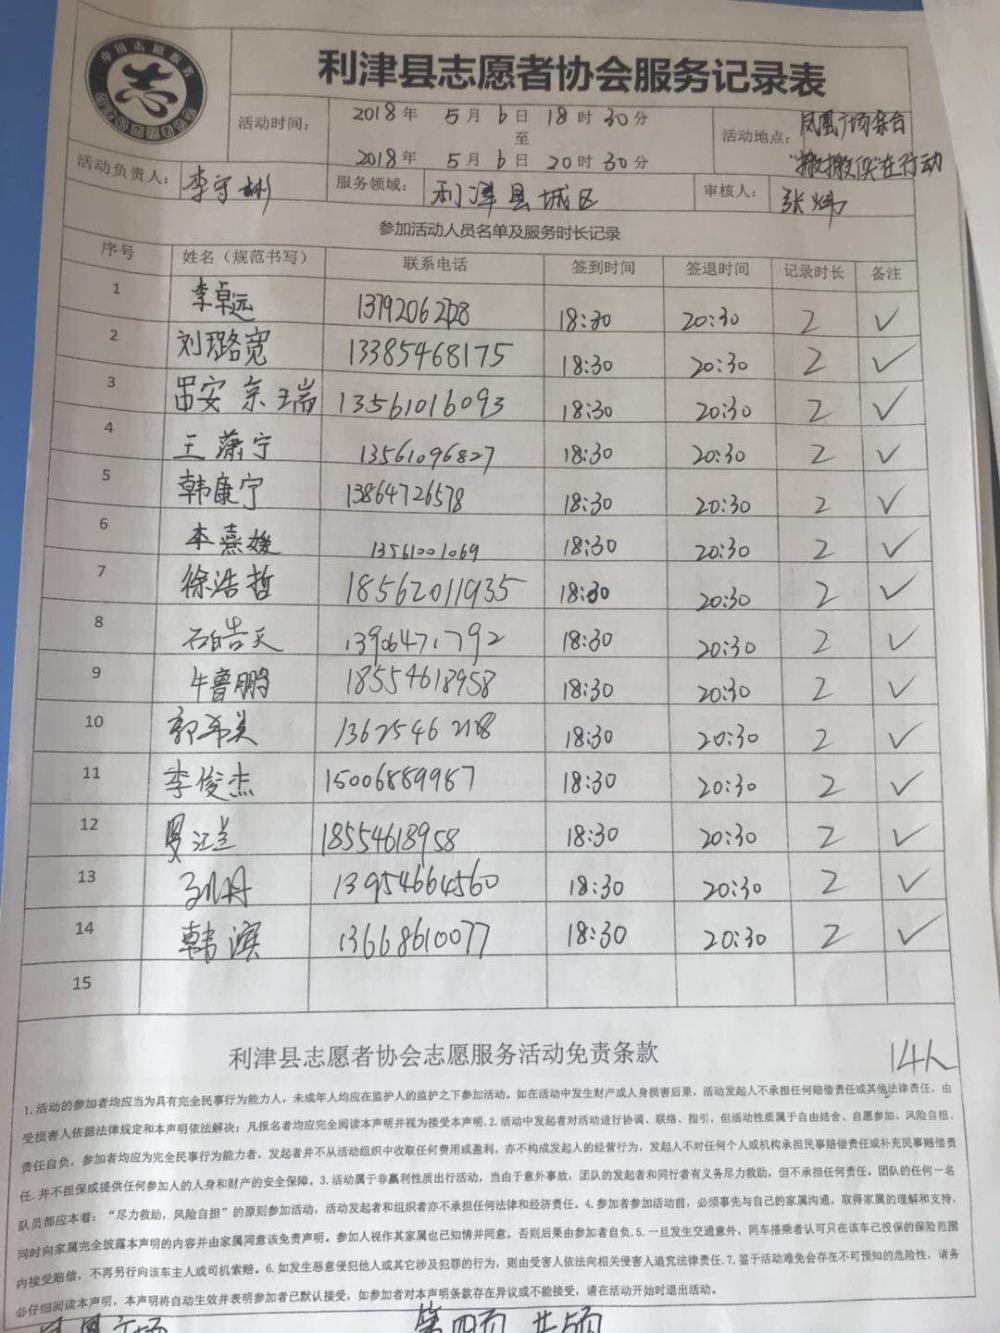 利津县志愿者协会服务记录表
活动时间： 2018年 5月 6日 18时 30分
至
2018年 5月 6日 20时 30分
活动地点： 凤凰广场综合
在行动
活动负责人： 李守彬 服务领域： 利津县城区 审核人： 张炜
参加活动人员名单及服务时长记录
序号 姓名（规范书写） 联系电话 签到时间 签退时间 记录时长 备注
1 李卓远 18:30 20:30 2 ✓
2 刘璐宽 13385468175 18:30 20:30 2 ✓
3 13561016093 18:30 20:30 2 ✓
4 王萧宁 13561096827 18:30 20:30 2 ✓
5 韩康宁 13864726578 18:30 20:30 2 ✓
6 13561001069 18:30 20:30 2 ✓
7 徐浩哲 18562011935 18:30 20:30 2 ✓
8 石皓天 13906471792 18:30 20:30 2 ✓
9 牛鲁鹏 18554618958 18:30 20:30 2 ✓
10 18:30 20:30 2 ✓
11 李俊杰 15006889987 18:30 20:30 2 ✓
12 18554618958 18:30 20:30 2 ✓
13 13954664560 18:30 20:30 2 ✓
14 韩滨 13668610077 18:30 20:30 2 ✓
15
利津县志愿者协会志愿服务活动免责条款
14人
1.活动的参加者均应当为具有完全民事行为能力人，未成年人均应在监护人的监护之下参加活动。如在活动中发生财产或人身损害后果，活动发起人不承担任何赔偿责任或其他法律责任，由
受损害人依据法律规定和本声明依法解决；凡报名者均应完全阅读本声明并视为接受本声明.2.活动中发起者对活动进行协调、联络、指引，但活动性质属于自由结合、自愿参加、风险自担、
责任自负，参加者均应为完全民事行为能力者，发起者并不从活动组织中收取任何费用或盈利，亦不构成发起人的经营行为，发起人不对任何个人或机构承担民事赔偿责任或补充民事赔偿责
任.并不担保或提供任何参加人的人身和财产的安全保障。3.活动属于非赢利性质出行活动，当由于意外事故，团队的发起者和同行者有义务尽力救助，但不承担任何责任。团队的任何一名
队员都应本着：“尽力救助，风险自担”的原则参加活动，活动发起者和组织者亦不承担任何法律和经济责任。4.参加者参加活动前，必须事先与自己的家属沟通，取得家属的理解和支持、
同时向家属完全披露本声明的内容并由家属同意该免责声明。参加人视作其家属也已知情并同意，否则后果由参加者自负.5.一旦发生交通意外，同车搭乘者认可只在该车已投保的保险范围
内接受赔偿，不再另行向该车主人或司机索赔。6.如发生恶意侵犯他人或其它涉及犯罪的行为，则由受害人依法向相关侵害人追究法律责任.7.鉴于活动难免会存在不可预知的危险性，请务
必仔细阅读本声明，本声明将自动生效并表明参加者已默认接受，如参加者对本声明条款存在异议或不能接受，请在活动开始时退出活动。
第四页 共5页